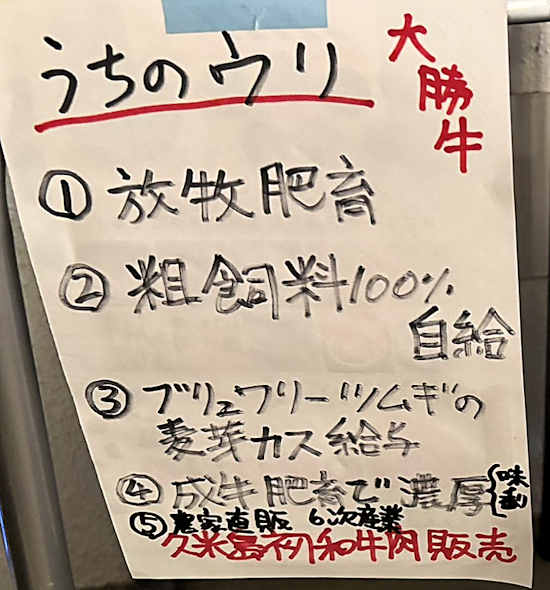 うちのウリ
大勝牛
① 放牧肥育
② 粗飼料100%
自給
③ ブリュワリーツムギの
麦芽カス給与
④ 成牛肥育で濃厚
味
⑤ 農家直販 6次産業
久米島初和牛肉販売